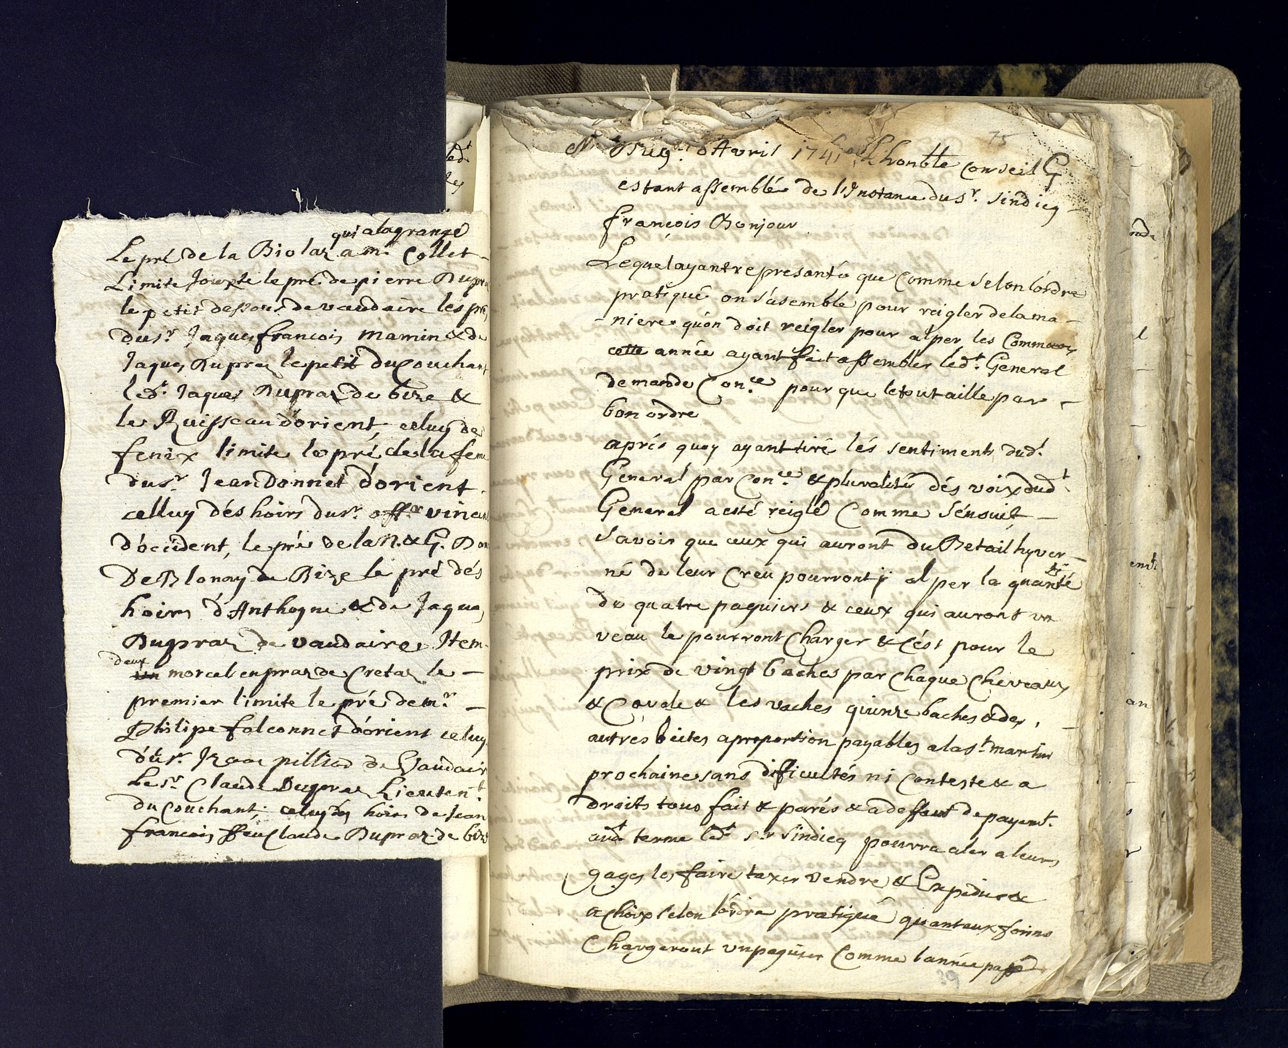 qui a la grange
Le pré de la Biolaz a mr. Collet
Limite Jouxte le pré de pierre Dupra
le petit dessous de vaudaire les pré
du sr. Jaques francois mamin & de
Jaques Dupraz le petit du Couchant
led. Jaques Dupraz de bize &
le Ruisseau d'orient celuy de
fenix limite le pré de la fem
du sr. Jean Donnet d'orient
celluy dés hoirs du sr. vincen
d'occident, le pré de la N. & G.
De Blonay de Bize le pré dés
hoirs d'Anthoyne & de Jaques
Dupraz de vaudaire, Item
deux
morcel en praz de Cretaz le –
premier limite le pré de mr. –
Philipe falconnet d'orient celuy
du sr. Isaac pilliod de Vaudaire
Le sr. Claude Dupraz Lieutent.
du Couchant, celuy dés hoirs de Jean
francois ffeu Claude Dupraz de bize
75
6 Avril 1741 honble Conseil G
estant assemblé de l'Instance du sr. Sindicq –
francois Bonjour
Lequel ayant représanté que Comme selon lordre
pratiqué on s'asemble pour reigler de la ma –
niere qu'on doit reigler pour alper les Communs
cette année ayant fait assembler led. General
demande Con.ce pour que le tout aille par –
bon ordre
aprés quoy ayant tiré lés sentiments dud.
General par Con.ce & pluralité dés voix dud.
General a esté reiglé Comme s'ensuit –
Savoir que ceux qui auront du Betail hyver –
né de leur Creu pourront y alper la quantité
de quatre paquiers & ceux qui auront un
veau le pourront Charger & c'est pour le
prix de vingt baches par Chaque Chevaux
& Cavale & les vaches quinze baches & des
autrés béétes a proportion payables a la st. martin
prochaine sans dificultés ni Conteste & a
droits tous fait & parés & a deffaut de payemt.
aud. terme led. sr. Sindicq pourra aler a leurs
gages les faire taxer vendre & Expedier &
a Choix selon lordre pratiqué quant aux foins
Chargeront un paquier Comme l'année passé